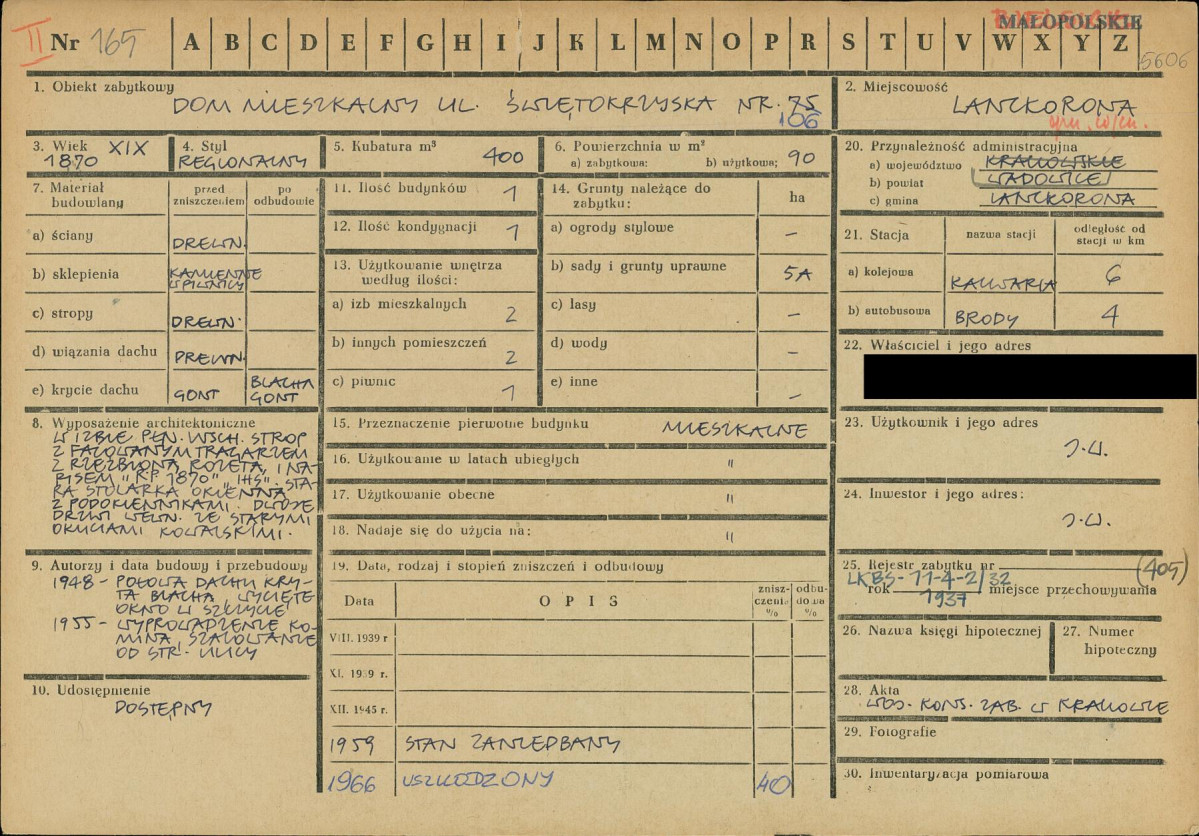 II Nr 165 A B C D E F G H I J K L M N O P R S T U V W X Y Z
MAŁOPOLSKIE
5606
1. Obiekt zabytkowy
DOM MIESZKALNY UL. ŚWIĘTOKRZYSKA NR. 75
106
2. Miejscowość
LANCKORONA
gm. w/m.
3. Wiek XIX
1870
4. Styl
REGIONALNY
5. Kubatura m³
400
6. Powierzchnia w m²
a) zabytkowa: b) użytkowa; 90
20. Przynależność administracyjna
a) województwo KRAKOWSKIE
b) powiat WADOWICE
c) gmina LANCKORONA
7. Materiał budowlany
przed zniszczeniem
po odbudowie
a) ściany DREWN.
b) sklepienia KAMIENNE
W PIWNICY
c) stropy DREWN.
d) wiązania dachu DREWN.
e) krycie dachu GONT BLACHA
GONT
11. Ilość budynków 1
12. Ilość kondygnacji 1
13. Użytkowanie wnętrza
według ilości:
a) izb mieszkalnych 2
b) innych pomieszczeń 2
c) piwnic 1
14. Grunty należące do
zabytku: ha
a) ogrody stylowe –
b) sady i grunty uprawne 5A
c) lasy –
d) wody –
e) inne –
21. Stacja nazwa stacji odległość od
stacji w km
a) kolejowa KALWARIA 6
b) autobusowa BRODY 4
22. Właściciel i jego adres
8. Wyposażenie architektoniczne
W IZBIE PŁN. WSCH. STROP
Z FAZOWANYM TRAGARZEM
Z RZEŹBIONĄ ROZETĄ, I NA-
PISEM "RP 1870" "IHS". STA-
RA STOLARKA OKIENNA
Z PODOKIENNIKAMI. DWOJE
DRZWI WEWN. ZE STARYMI
OKUCIAMI KOWALSKIMI.
15. Przeznaczenie pierwotne budynku MIESZKALNE
16. Użytkowanie w latach ubiegłych "
17. Użytkowanie obecne "
18. Nadaje się do użycia na: "
23. Użytkownik i jego adres
J.W.
24. Inwestor i jego adres:
J.W.
9. Autorzy i data budowy i przebudowy
1948 - POŁOWA DACHU KRY-
TA BLACHĄ, WYCIĘTE
OKNO W SZCZYCIE
1955 - WYPROWADZENIE KO-
MINA, SZALOWANIE
OD STR. ULICY
10. Udostępnienie
DOSTĘPNY
19. Data, rodzaj i stopień zniszczeń i odbudowy
Data OPIS zniszczenia % odbudowa %
VIII. 1939 r
XI. 1939 r.
XII. 1945 r.
1959 STAN ZANIEDBANY
1966 USZKODZONY 40
25. Rejestr zabytku nr (405)
LKBS-11-4-2/32
rok 1937 miejsce przechowywania
26. Nazwa księgi hipotecznej
27. Numer
hipoteczny
28. Akta
WOJ. KONS. ZAB. W KRAKOWIE
29. Fotografie
30. Inwentaryzacja pomiarowa